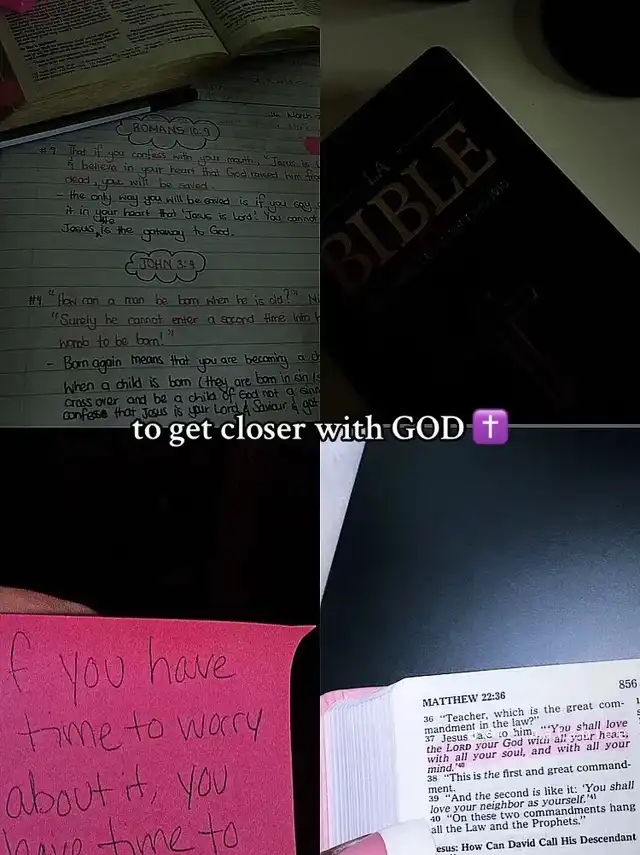 ROMANS 10:9
#9 That if you confess with your mouth, "Jesus is
& believe in your heart that God raised him
dead, you will be saved.
- the only way you will be saved is if you say
it in your heart that 'Jesus is Lord'. You cannot
Jesus, is the gateway to God.
JOHN 3:4
#4 "How can a man be born when he is old?"
"Surely he cannot enter a second time into
womb to be born!"
- Born again means that you are becoming a
When a child is born (they are born in sin
cross over and be a child of God not a
confess that Jesus is your Lord & Saviour &
LA
BIBLE
to get closer with GOD ✝️
f you have
time to worry
about it, you
have time to
MATTHEW 22:36
856
36 "Teacher, which is the great com-
mandment in the law?"
37 Jesus to him, "'You shall love
the LORD your God with all your heart,
with all your soul, and with all your
mind.'
38 "This is the first and great command-
ment.
39 "And the second is like it: 'You shall
love your neighbor as yourself.'
40 "On these two commandments hang
all the Law and the Prophets."
esus: How Can David Call His Descendant